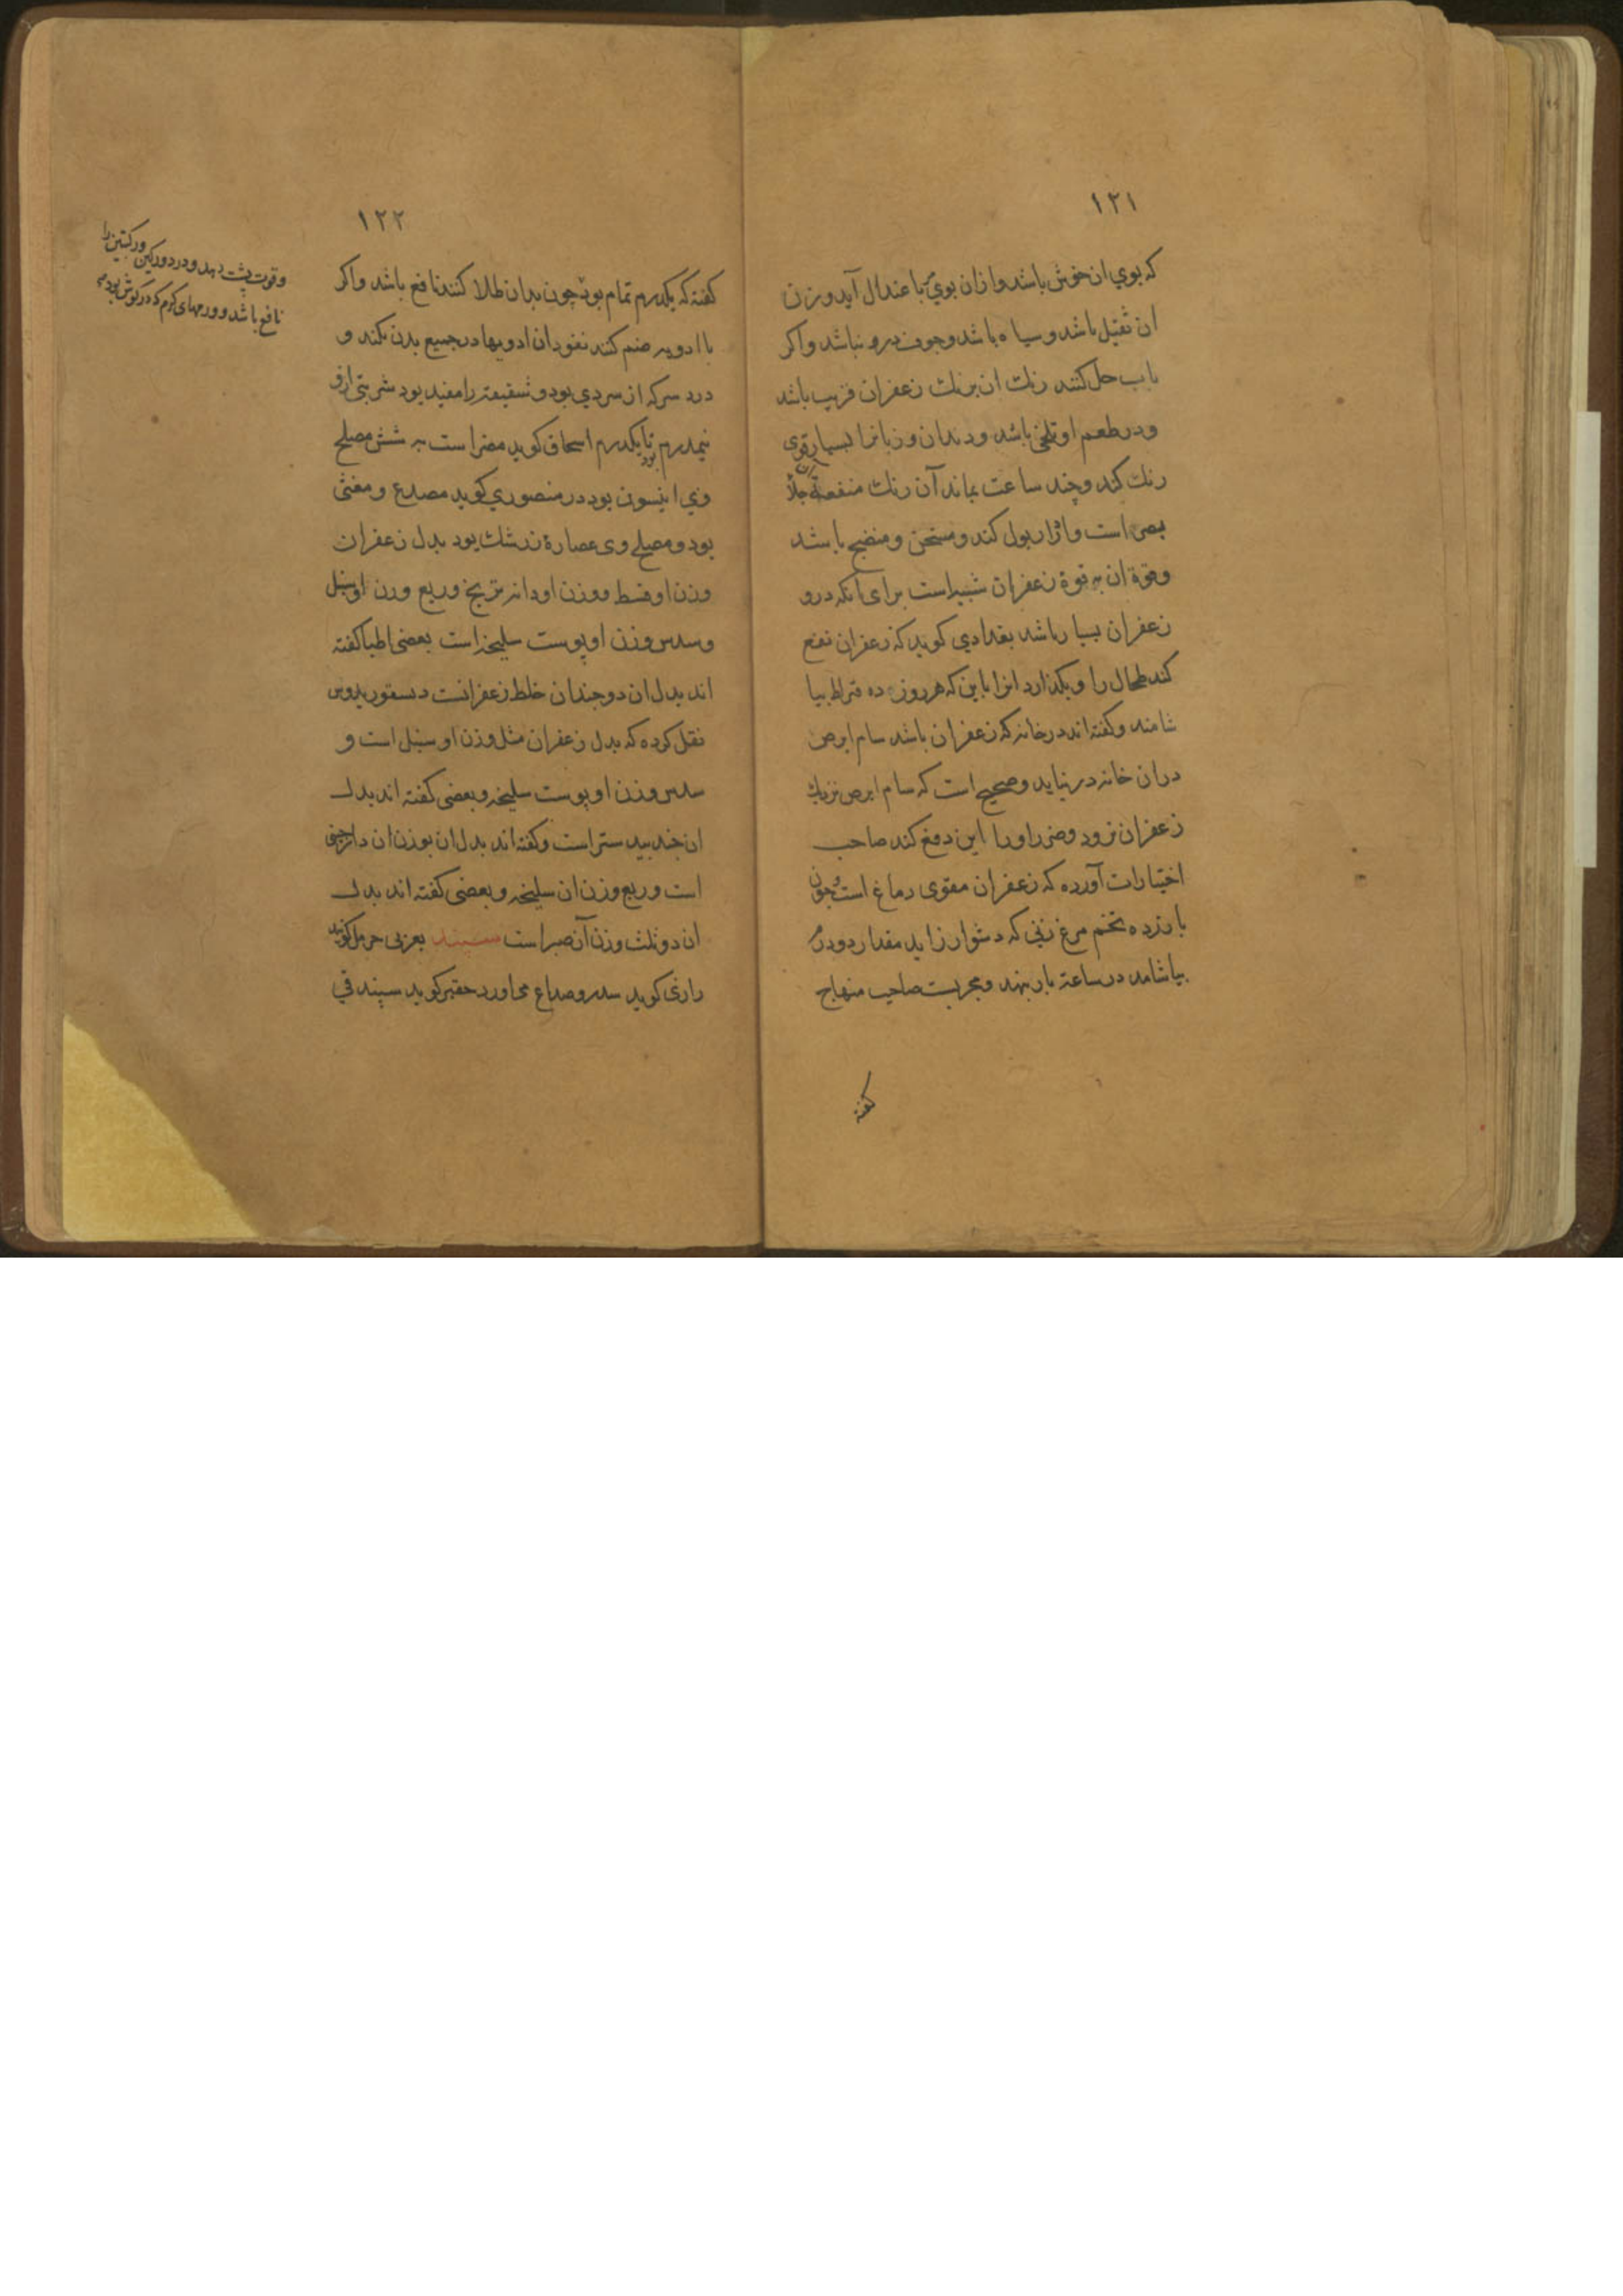 ١٢١
که بوي ان خوش باشد و ازان بوي مر با عتدال آید و زن
ان ثقیل باشد و سیاه باشد و جوف درو نباشد و اکر
باب حل کنند رنك ان برنك زعفران قریب باشد
و در طعم او تلخی باشد و دندان و زبانرا بسیار قوی
رنك کند و چند ساعت بماند آن رنك منفعة ان جلاء
بصر است و اژار بول کند و مسخن و منضج باشد
و قوة ان به قوة زعفران شبیه است برای انکه درو
زعفران بسیار باشد بغدادي کوید که زعفران نفع
کند طحال را و بکذارد انرا باین که هر روز ده قراط بیا
شامند و کفته اند در خانه که زعفران باشد سام ابرص
دران خانه در نیاید و صحیح است که سام ابرص نزدیك
زعفران نرود و ضر راورا این دفع کند صاحب
اختیارات آورده که زعفران مقوی دماغ است و چون
با زرده تخم مرغ زنی که دشوار زاید مقدار دو درم
بیاشامد در ساعة بار بنهد و مجربست صاحب منهاج
کفته
١٢٢
کفته که یکدرم تمام بود چون بدان طلا کنند نافع باشد و اکر
با ادویه ضم کنند نفوذ ان ادویها در جمیع بدن بکند و
درد سر که از سردي بود و شقیقه را مفید بود شربتی ازو
نیمدرم تا یکدرم بود اسحاق کوید مضر است به شش مصلح
وي انیسون بود در منصوري کوید مصدع و مغثی
بود و مصلح وی عصارۀ زرشك بود بدل زعفران
وزن او قسط و وزن او دانه ترنج و ربع وزن او سنبل
و سدس وزن او پوست سلیخه است بعضی اطبا کفته
اند بدل ان دو چندان خلط زعفرانست دسقوریدوس
نقل کرده که بدل زعفران مثل وزن او سنبل است و
سدس وزن او پوست سلیخه و بعضی کفته اند بدل
ان جند بید ستر است و کفته اند بدل ان بوزن ان دارچینی
است و ربع وزن ان سلیخه و بعضی کفته اند بدل
ان دو ثلث وزن آن صبر است سپند بعربی حرمل کویند
رازی کوید سدر و صداع می اورد حقیر کوید سپند قي
و قوت پشت دهد و درد ورکین را
نافع باشد و ورمهای کرم که در کوش بود